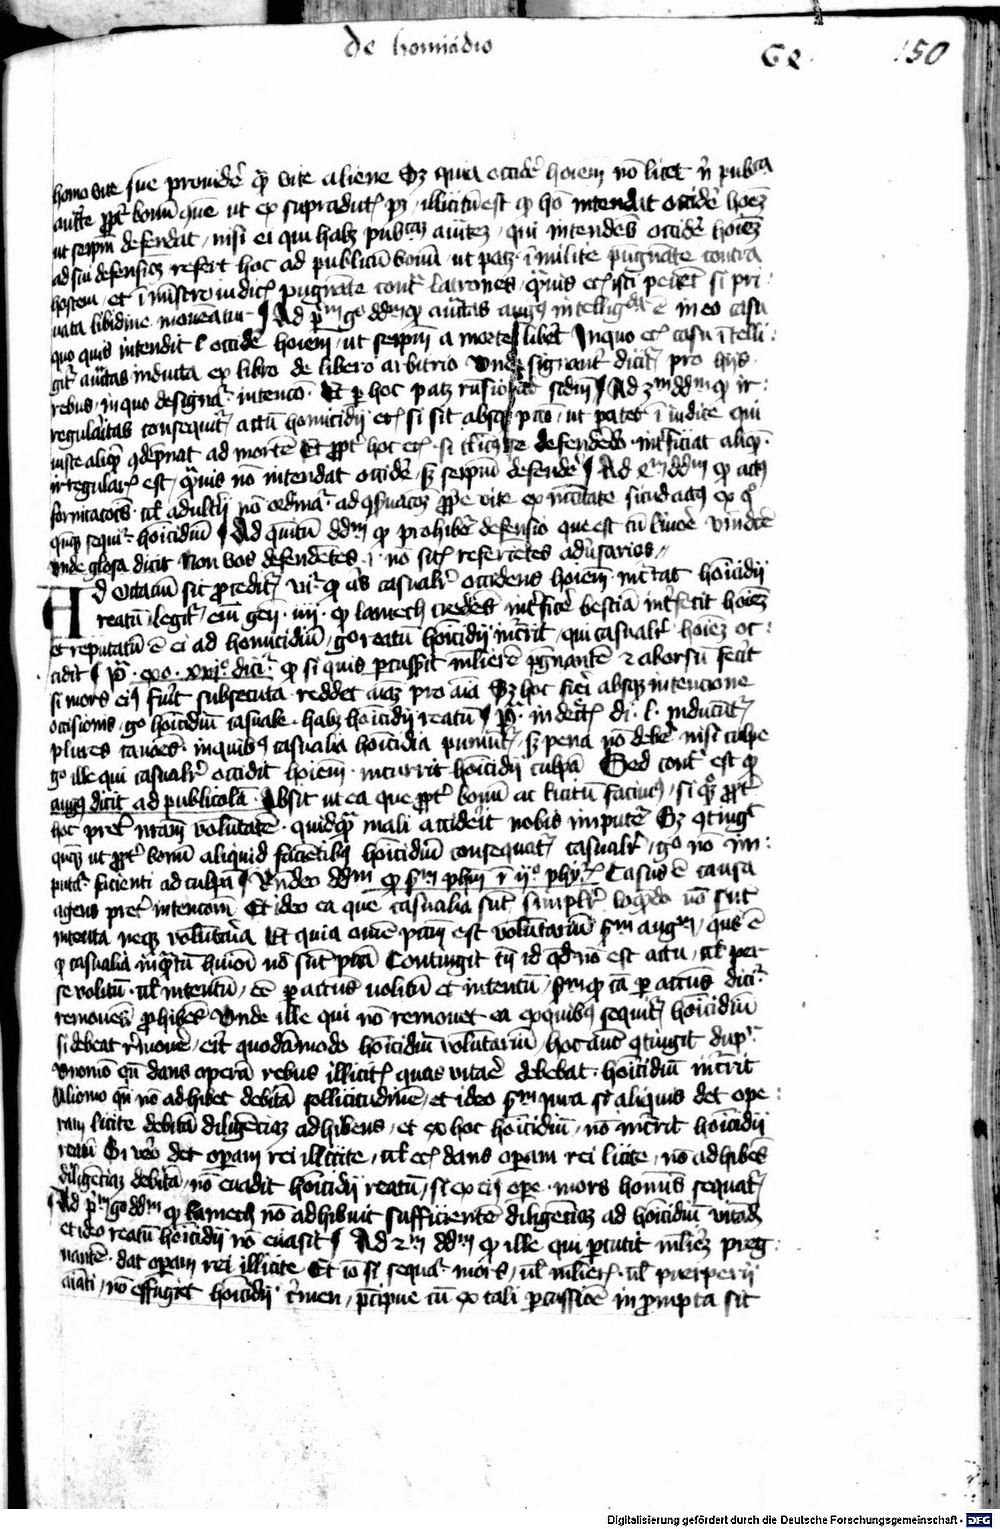 de homicidio
Ge 150
homo vite sue providere qm vite aliene Sz quia occidere hoiem no licet nisi publica
aucte ppt bonu come ut ex supradictis pz illicitu est qd ho intendat occidere hoiez
ut seipm defendat nisi ei qui habz publicaz auctez qui intendes occidere hoiez
ad sui defensioez refert hoc ad publicu bonu ut patz i milite pugnate contra
hostem et i ministro iudicis pugnate contra latrones qmuis et isti peccent si pri
uata libidine moueatur Ad pm go ddm qd auctas augi intelligeda e in eo casu
quo quis intendit occidere hoiem ut seipm a morte liberet In quo et casu itelli
gitur auctas inducta ex libro de libero arbitrio Unde signanter dicit pro hiis
rebus in quo designat intencio Et per hoc patz rnsio ad scdm Ad 3m ddm qd ir
regularitas consequitur actu homicidii et si sit absqz pcto ut patet i iudice qui
iuste aliqm codepnat ad morte Et ppt hoc et si clicus se defendedo interficiat aliqm
irregularis est qmuis no intendat occidere sz seipm defendere Ad 4m ddm qd actus
fornicacois vel adulterii no ordinat ad coseruacoez pprie vite ex necitate sicud actus ex quo
quiqz sequit homicidiu Ad quintu ddm qd prohibet defensio que est cu liuore vindicte
Unde glosa dicit Non vos defendetes i no sitis referietes aduersarios
Ad octauu sic procedit Vr qd aliquis casualiter occidens hoiem incurrat homicidii
reatu legit em gen iiii qd lamech credes interficere bestia interfecit hoiez
et reputatu e ei ad homicidiu go reatu homicidii incurrit qui casualiter hoiez oc
cidit P exo xxi dicit qd si quis pcusserit muliere pgnante et aborsu fecit
si mors eius fuerit subsecuta reddet aiaz pro aia Sz hoc fieri absqz intencione
occisionis go homicidiu casuale habz homicidii reatu P in decretis di l inducut
plures canoes in quibus casualia homicidia puniut sz pena no debet nisi culpe
go ille qui casualiter occidit hoiem incurrit homicidii culpa Sed contra est qd
augus dicit ad publicola Absit ut ea que ppt bonu ac licitu facimus si quid ppt
hoc preter nram volutate quidqm mali acciderit nobis imputet Sz cotingit
quiqz ut ppt bonu aliquid facietibus homicidiu consequatur casualiter go no im
putat facienti ad culpa Rndeo ddm qd scdm phm i iio phyr Casus e causa
agens preter intencoem Et ideo ea que casualia sut simpliciter loquedo no sut
intenta neqz volutaria Et quia omne pctm est voluntariu scdm augm coseques e
qd casualia inqtu huioi no sut pcta Contingit tn id qd no est actu vel per
se volitu vel intentu ee per accns volitu et intentu scdm qd ca per accns dicit
remouens prohibes Unde ille qui no remouet ea ex quibus sequit homicidiu
si debeat remouere erit quodamodo homicidiu voluntariu hoc aut cotingit duplr
Uno mo qn dans opera rebus illicitis quas vitare debebat homicidiu incurrit
Alio mo qn no adhibet debita sollicitudine et ideo scdm iura si aliquis det ope
ram licite debita diligeciaz adhibens et ex hoc homicidiu no incurrit homicidii
reatu Si vero det operam rei illicite vel et dans operam rei licite no adhibes
diligeciaz debita no euadit homicidii reatu si ex eius ope mors hominis sequatur
Ad pm go ddm qd lamech no adhibuit sufficiente diligeciaz ad homicidiu vitad
et ideo reatu homicidii no euasit Ad 2m ddm qd ille qui pcutit muliere preg
nante dat operam rei illicite Et io si sequatur mors vel mulieris vel puerperii
aiati no effugiet homicidii crimen precipue cu ex tali percussioe in prompta sit
Digitalisierung gefördert durch die Deutsche Forschungsgemeinschaft - DFG